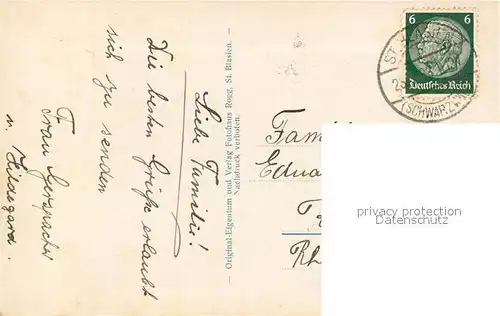 Liebe Familie!
Die besten Grüße erlaubt
sich zu senden
Frau
u. Hildegard.
— Original-Eigentum und Verlag Fotohaus Rogg, St. Blasien. —
Nachdruck verboten.
6 6
Deutsches Reich
ST.
(SCHWARZW
Famil
Edua
Rh
privacy protection
Datenschutz